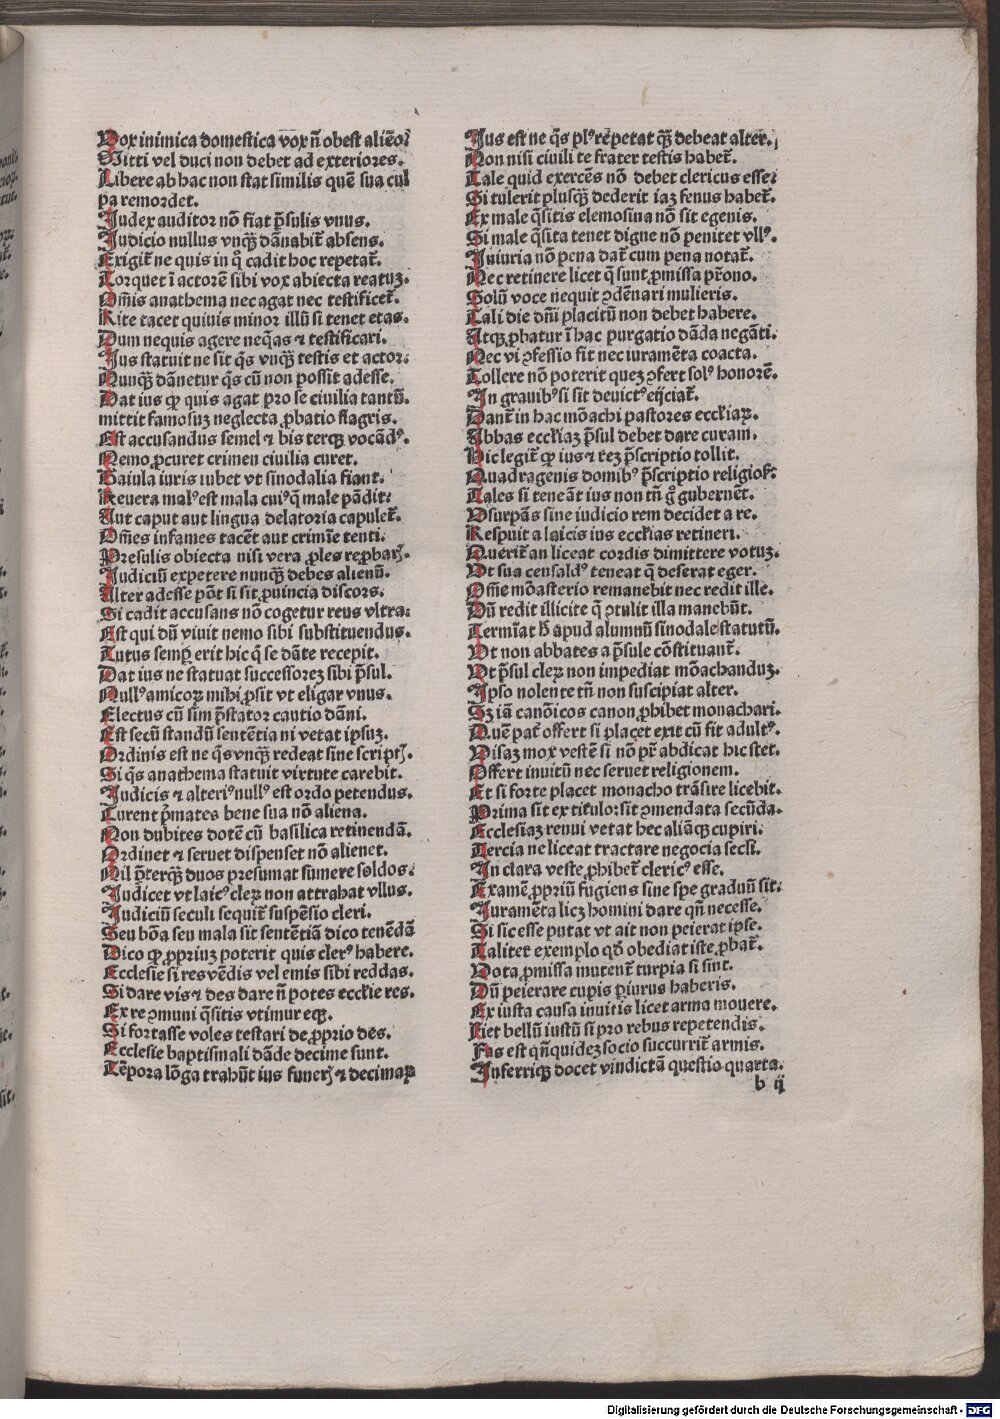 Vox inimica domestica vox n̄ obest aliēoꝝ
Mitti vel duci non debet ad exteriores.
Libere ab hac non stat similis quē sua cul
pa remordet.
Judex auditor nō fiat p̄sulis vnus.
Judicio nullus vnqꝫ dānabit̄ absens.
Exigit̄ ne quis in q̊ cadit hoc repetat̄.
Torquet ī actorē sibi vox abiecta reatuꝫ.
Om̄is anathema nec agat nec testificet̄.
Rite tacet quiuis minor illū si tenet etas.
Dum nequis agere neq̄as ⁊ testificari.
Jus statuit ne sit q̄s vnqꝫ testis et actor.
Nunqꝫ dānetur q̄s cū non possit adesse.
Dat ius ꝙ quis agat pro se ciuilia tantū.
mittit famosuꝫ neglecta ꝓbatio flagris.
Est accusandus semel ⁊ bis terqꝫ vocādꝰ.
Nemo ꝓcuret crimen ciuilia curet.
Baiula iuris iubet vt sinodalia fiant.
Reuera malꝰ est mala cuiꝰ q̄ male pādit.
Aut caput aut lingua delatoria capulet̄.
Om̄es infames tacēt aut crimīe tenti.
Presulis obiecta nisi vera ꝓles reꝓbarꝭ.
Judiciū expetere nunqꝫ debes alienū.
Alter adesse pōt si sit ꝓuincia discors.
Si cadit accusans nō cogetur reus vltra.
Est qui dū viuit nemo sibi substituendus.
Tutus semꝑ erit hic q̄ se dāte recepit.
Dat ius ne statuat successoreꝫ sibi p̄sul.
Nullꝰ amicoꝝ mihi ꝓsit vt eligar vnus.
Electus cū sim p̄stator cautio dāni.
Est secū standū sentētia ni vetat ipsuꝫ.
Ordinis est ne q̄s vnqꝫ redeat sine scriptꝭ.
Si q̄s anathema statuit virtute carebit.
Judicis ⁊ alteriꝰ nullꝰ est ordo petendus.
Curent p̄mates bene sua nō aliena.
Non dubites dotē cū basilica retinendā.
Ordinet ⁊ seruet dispenset nō alienet.
Nil p̄terqꝫ duos presumat sumere soldos.
Judicet vt laicꝰ cleꝝ non attrahat vllus.
Judiciū seculi sequit̄ suspēsio cleri.
Seu bōa seu mala sit sentētiā dico tenēdā
Dico ꝙ ꝓpriuꝫ poterit quis clerꝰ habere.
Ecclesie si res vēdis vel emis sibi reddas.
Si dare vis ⁊ des dare n̄ potes eccl̄ie res.
Ex re ꝯmuni q̄sitis vtimur eqꝫ.
Si fortasse voles testari de ꝓprio des.
Ecclesie baptismali dāde decime sunt.
Tēpora lōga trahūt ius funerꝭ ⁊ decimaꝝ
Jus est ne q̄s plꝰ repetat qꝫ debeat alter.
Non nisi ciuili te frater testis habet̄.
Tale quid exercēs nō debet clericus esse.
Si tulerit plusqꝫ dederit iaꝫ fenus habet̄.
Ex male q̄sitis elemosina nō sit egenis.
Si male q̄sita tenet digne nō penitet vllꝰ.
Iniuria nō pena dat̄ cum pena notat̄.
Nec retinere licet q̄ sunt ꝓmissa pr̄ono.
Solū voce nequit ꝯdēnari mulieris.
Tali die dn̄i placitū non debet habere.
Atqꝫ ꝓbatur ī hac purgatio dāda negāti.
Nec vi ꝯfessio fit nec iuramēta coacta.
Tollere nō poterit queꝫ ꝯfert solꝰ honorē.
In grauibꝰ si sit deuictꝰ eijciat̄.
Dant̄ in hac mōachi pastores eccl̄iaꝝ.
Abbas eccl̄iaꝫ p̄sul debet dare curam.
Hic legit̄ ꝙ ius ⁊ reꝫ p̄scriptio tollit.
Quadragenis domibꝰ p̄scriptio religioſꝭ.
Tales si teneāt ius non tn̄ gͦ gubernēt.
Vsurpās sine iudicio rem decidet a re.
Respuit a laicis ius eccl̄ias retineri.
Querit̄ an liceat cordis dimittere votuꝫ.
Vt sua censaldꝰ teneat q̄ deserat eger.
Om̄ie mōasterio remanebit nec redit ille.
Dū redit illicite q̄ ꝯtulit illa manebūt.
Termīat h̄ apud alumnū sinodale statutū.
Vt non abbates a p̄sule cōstituant̄.
Vt p̄sul cleꝝ non impediat mōachanduꝫ.
Ipso nolente tn̄ non suscipiat alter.
Sꝫ iā canōicos canon ꝓhibet monachari.
Quē pat̄ offert si placet exit cū fit adultꝰ.
Visaꝫ mox vestē si nō pr̄ abdicat hic stet.
Offert inuitū nec seruet religionem.
Et si forte placet monacho trāsire licebit.
Prima sit ex titulo: sit ꝯmendata secūda.
Ecclesiaꝫ renui vetat hec aliāqꝫ cupiri.
Tercia ne liceat tractare negocia secl̄i.
In clara veste ꝓhibet̄ clericꝰ esse.
Examē ꝓpriū fugiens sine spe graduū sit.
Juramēta licꝫ homini dare qn̄ necesse.
Si sic esse putat vt ait non peierat ipse.
Taliter exemplo qd̄ obediat iste ꝓbat̄.
Vota ꝓmissa mutent̄ turpia si sint.
Dū peierare cupis ꝑiurus haberis.
Ex iusta causa inuitis licet arma mouere.
Fiet bellū iustū si pro rebus repetendis.
Fas est qn̄quideꝫ socio succurrit̄ armis.
Inferriqꝫ docet vindictā questio quarta.
b ij
Digitalisierung gefördert durch die Deutsche Forschungsgemeinschaft - DFG